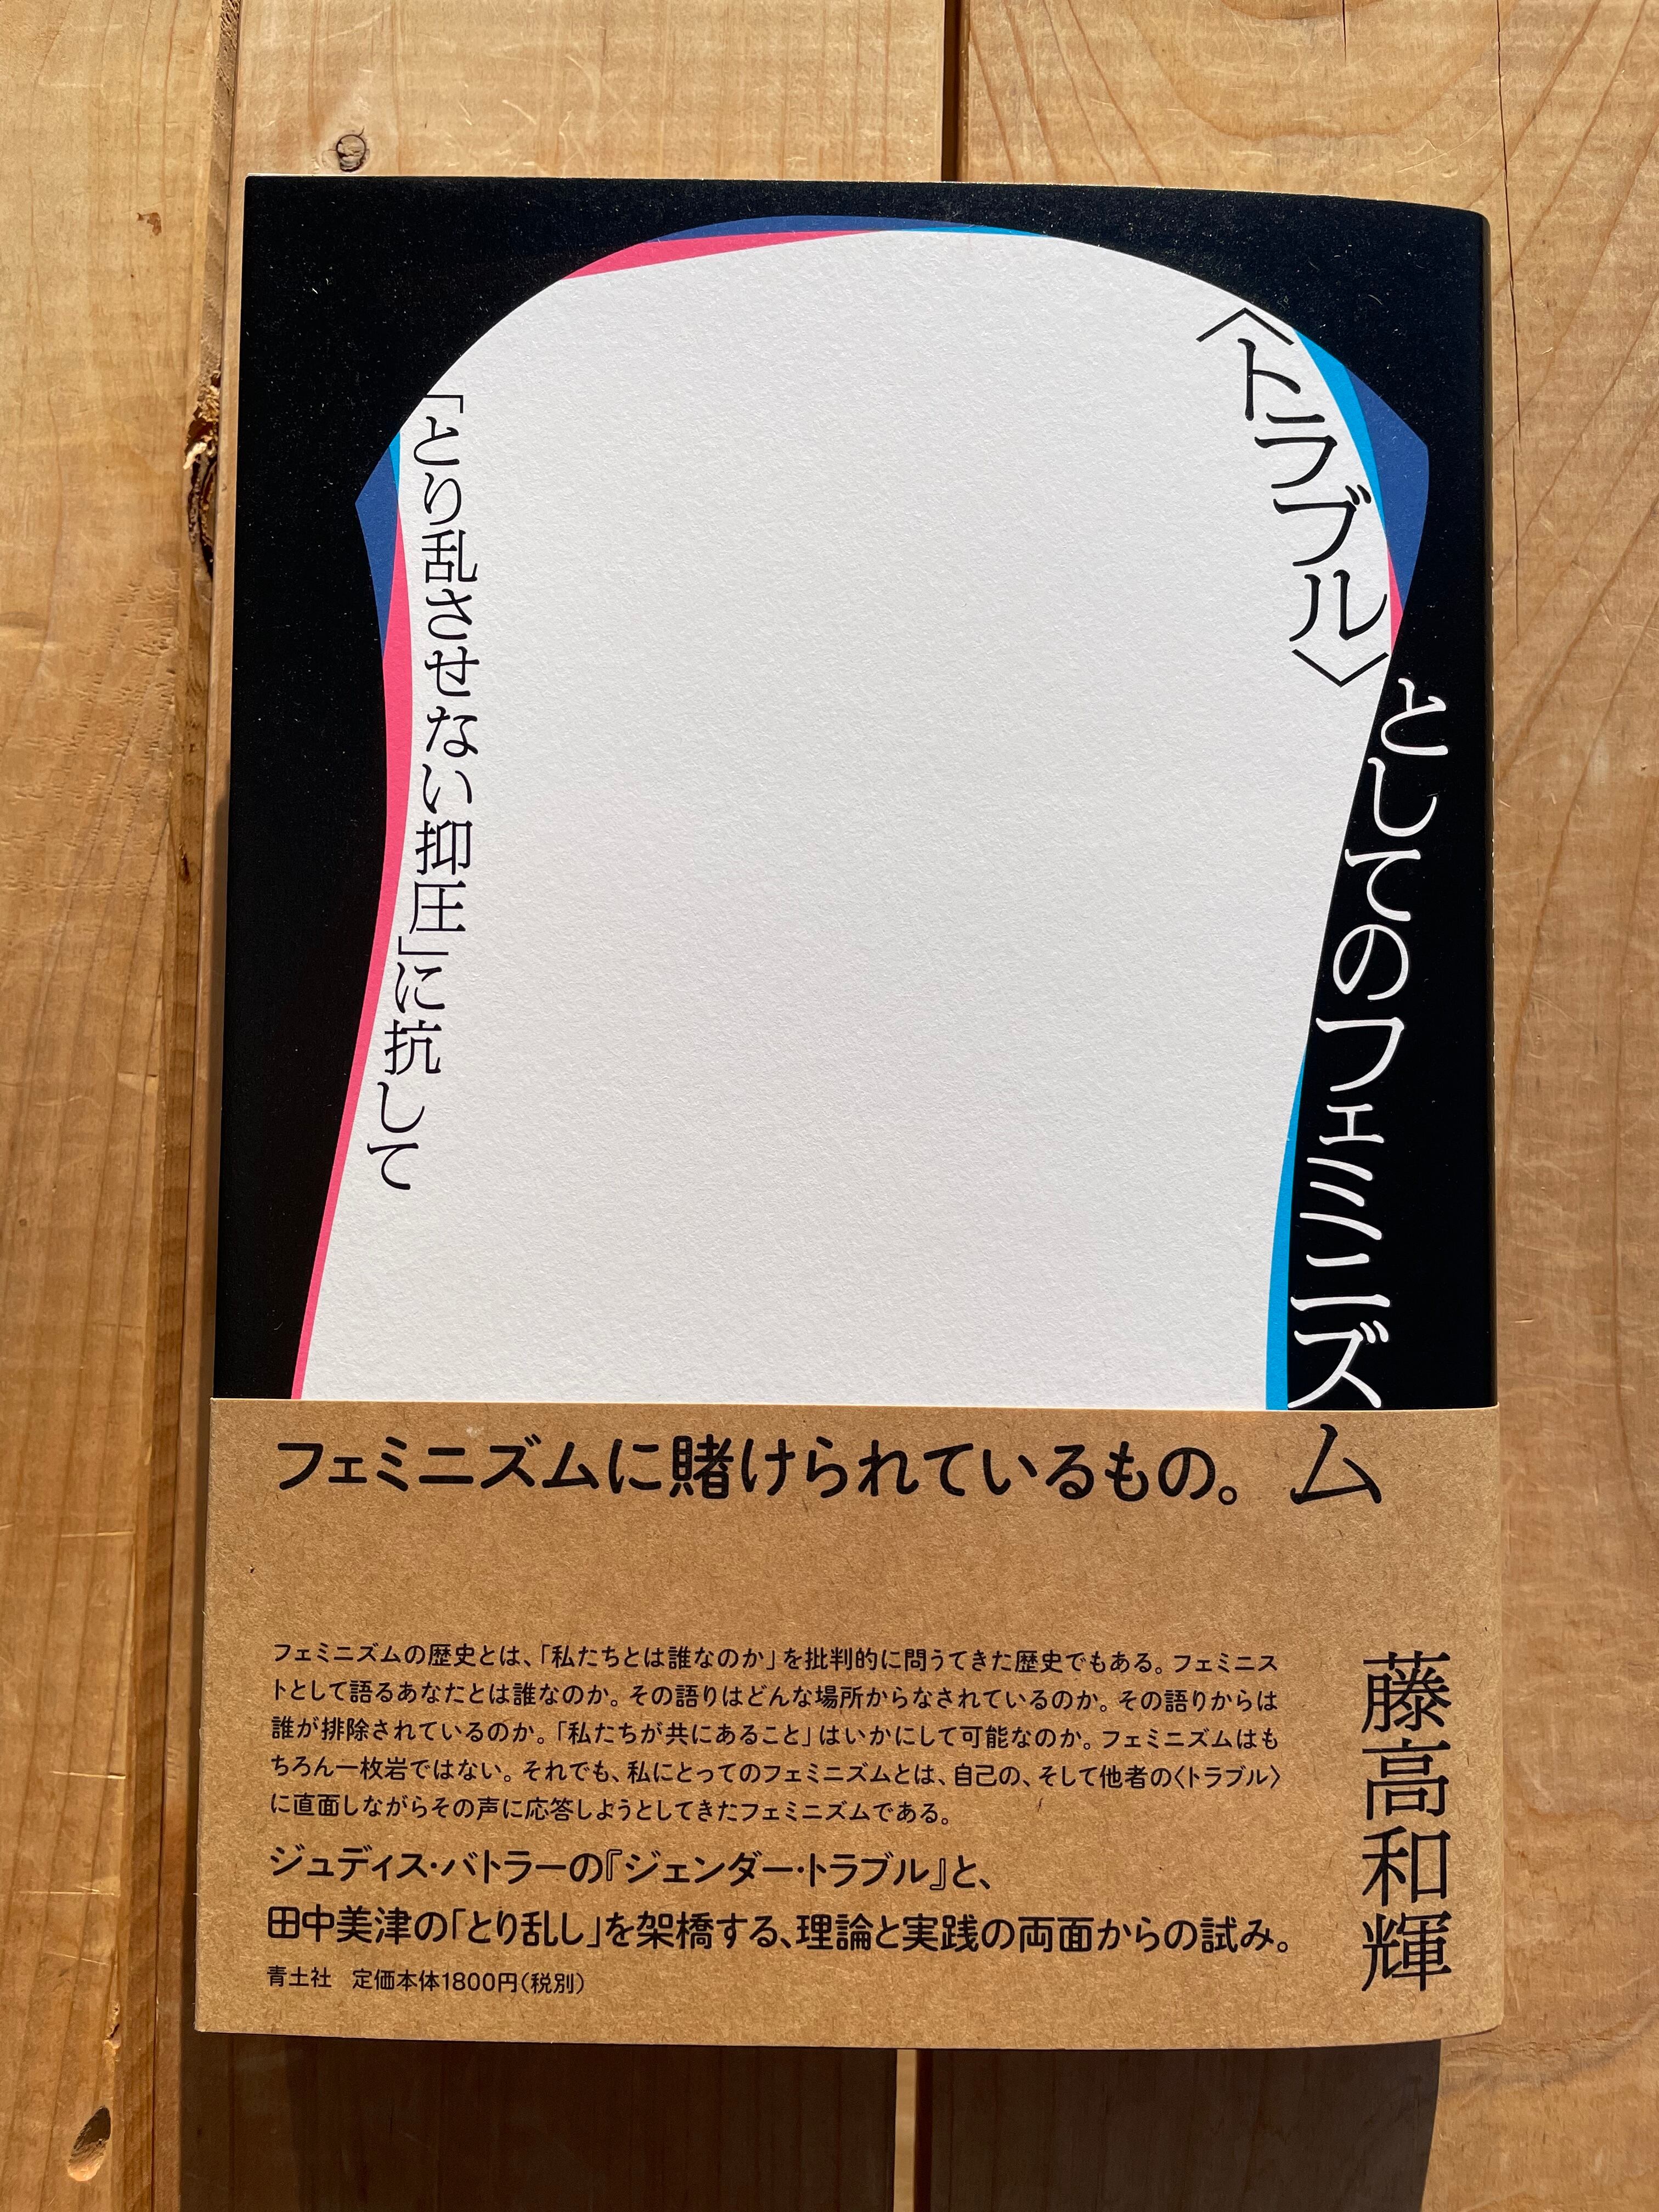 〈トラブル〉としてのフェミニズム
「とり乱させない抑圧」に抗して
藤高和輝
フェミニズムに賭けられているもの。
フェミニズムの歴史とは、「私たちとは誰なのか」を批判的に問うてきた歴史でもある。フェミニス
トとして語るあなたとは誰なのか。その語りはどんな場所からなされているのか。その語りからは
誰が排除されているのか。「私たちが共にあること」はいかにして可能なのか。フェミニズムはも
ちろん一枚岩ではない。それでも、私にとってのフェミニズムとは、自己の、そして他者の〈トラブル〉
に直面しながらその声に応答しようとしてきたフェミニズムである。
ジュディス・バトラーの『ジェンダー・トラブル』と、
田中美津の「とり乱し」を架橋する、理論と実践の両面からの試み。
青土社　定価本体1800円(税別)